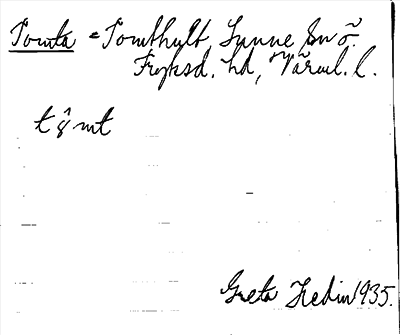 Tomta = Tomthult Sunne sn ö.
Fryksd. hd, Värml. l.
Greta Hedin 1935.